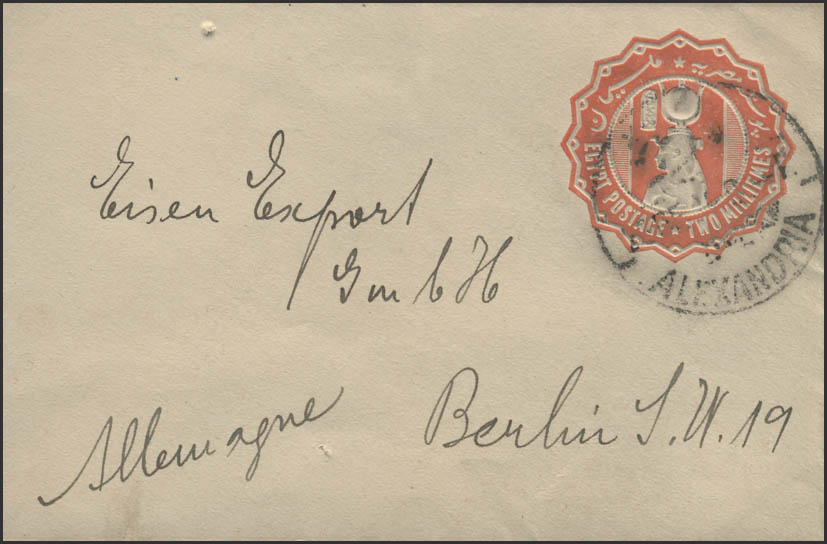 بوستة مصرية ★ مليمان
EGYPT POSTAGE ★ TWO MILLIEMES
ALEXANDRIA
Eisen Export
GmbH
Allemagne
Berlin S.W. 19